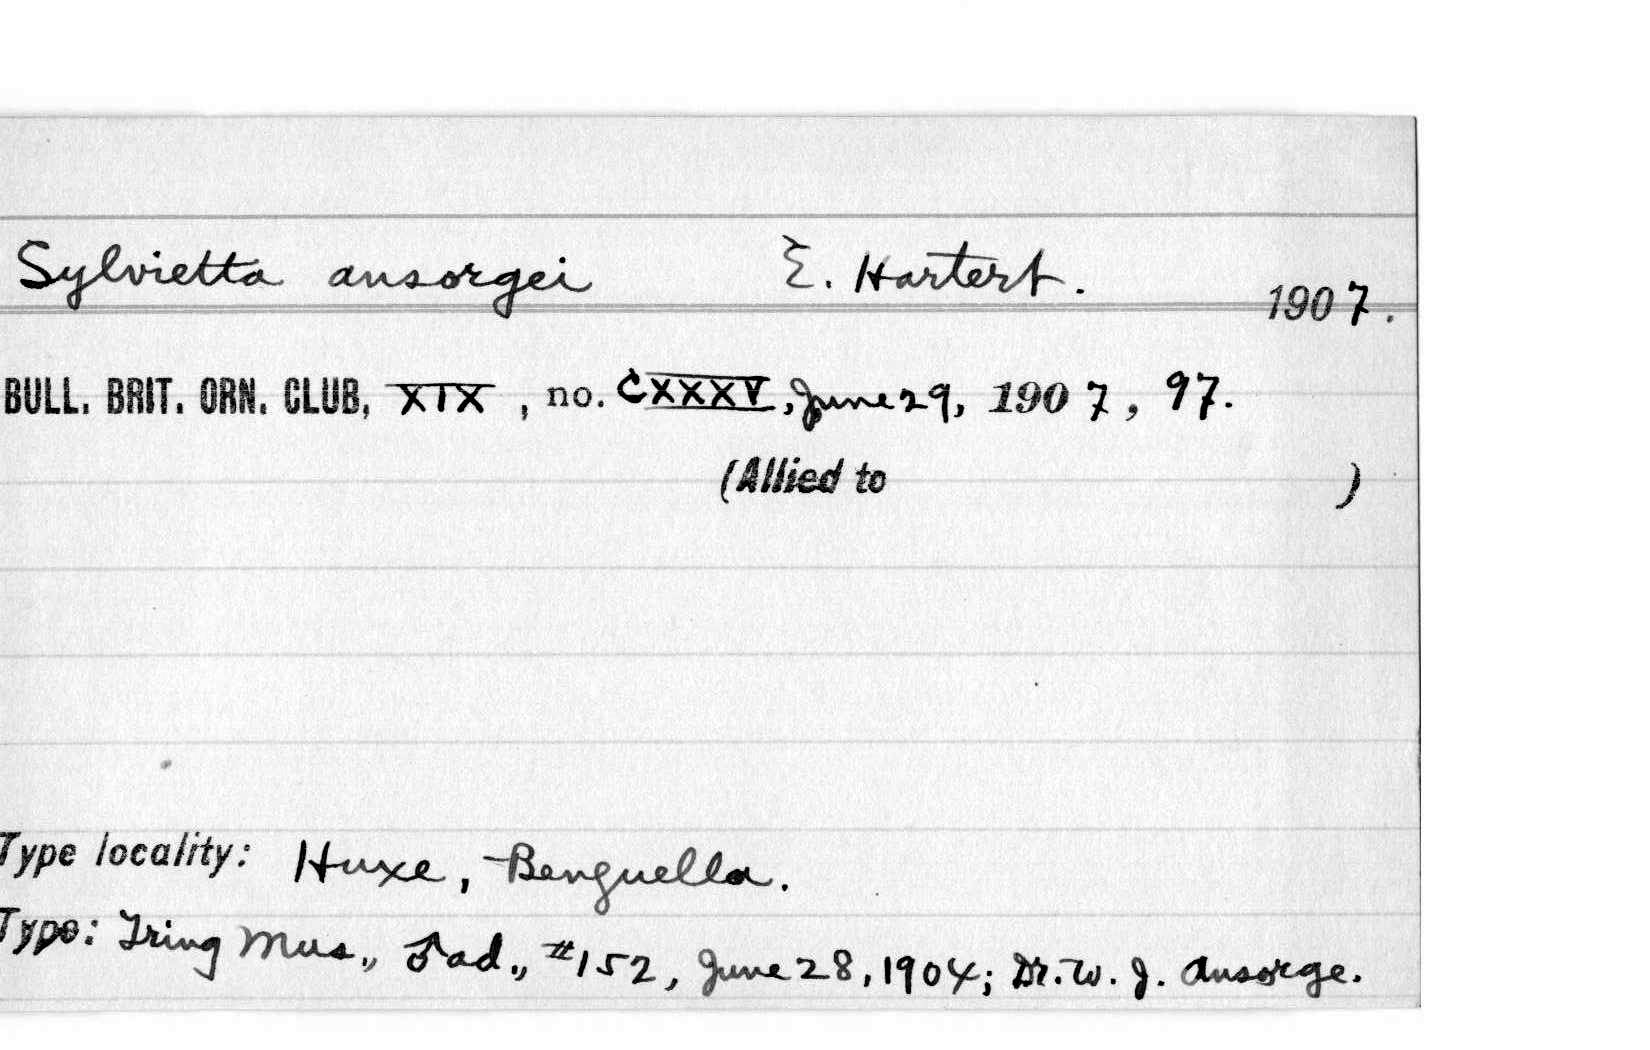 Sylvietta ansorgei E. Hartert. 1907.
BULL. BRIT. ORN. CLUB, XIX, no. CXXXV, June 29, 1907, 97.
(Allied to )
Type locality: Huxe, Benguella.
Type: Tring Mus., ♂ad., #152, June 28, 1904; Dr. W. J. Ansorge.